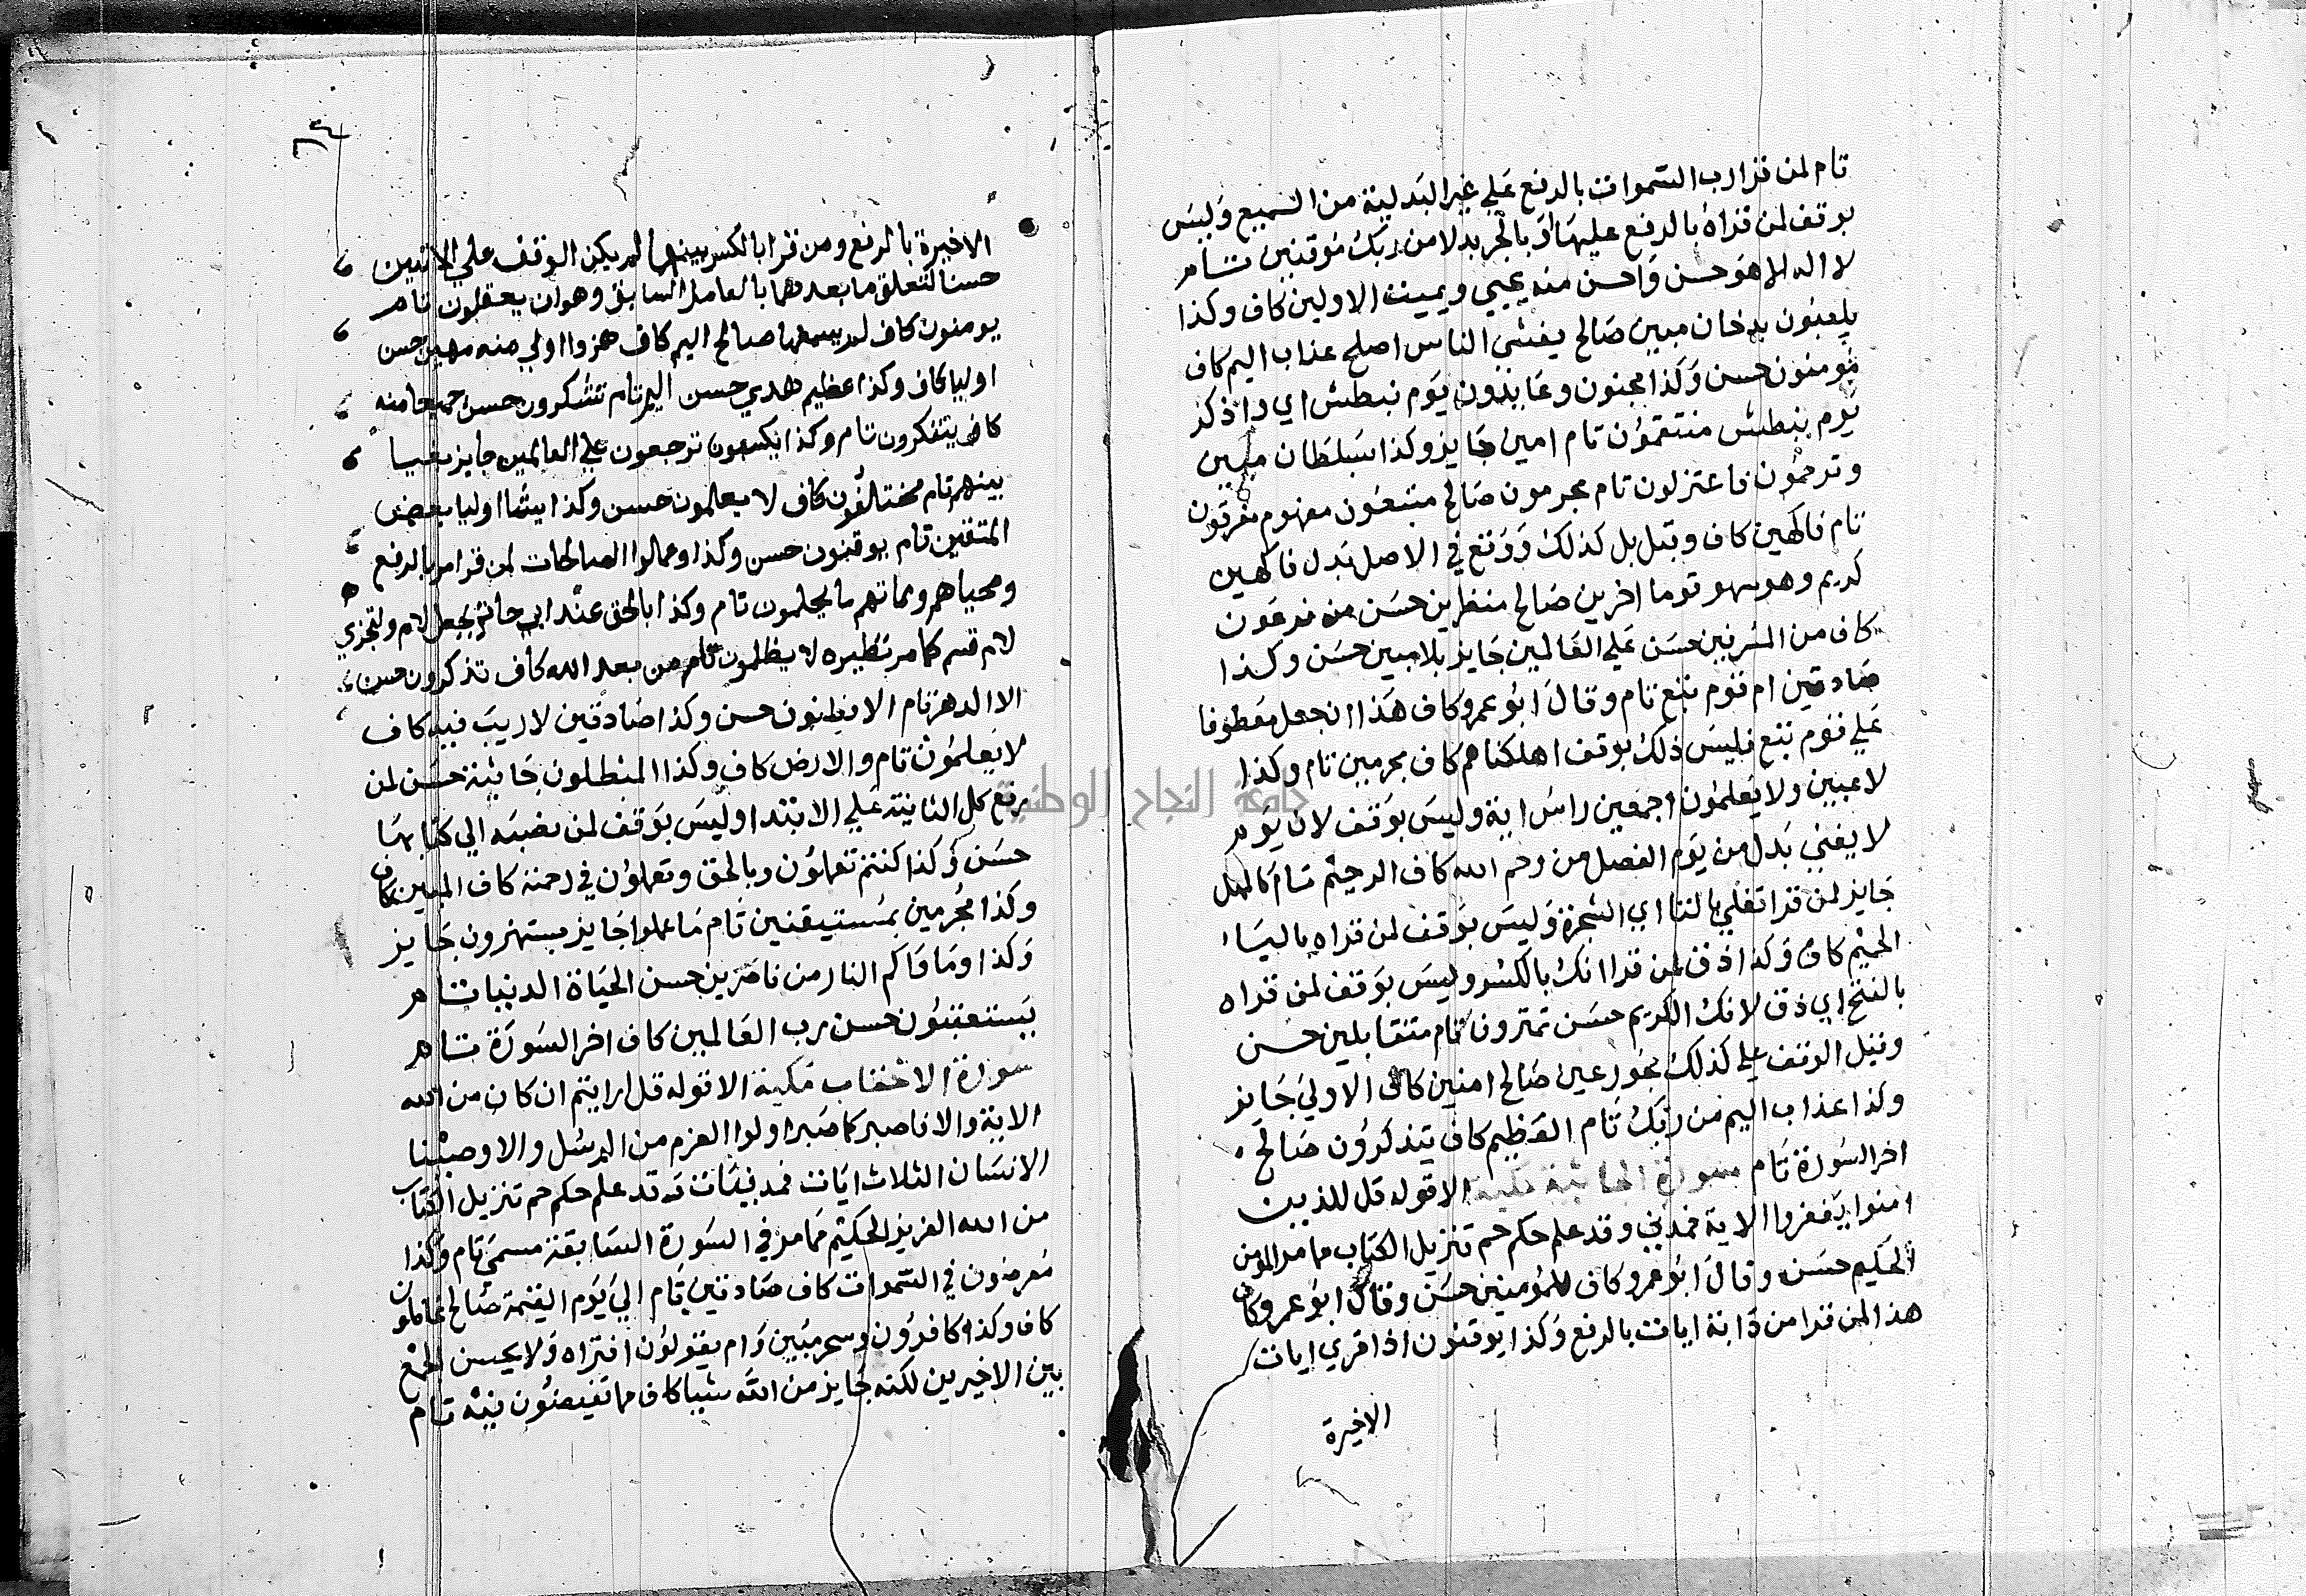 تام لمن قرا رب السموات بالرفع علي غير البدلية من السميع وليس
بوقف لمن قراه بالرفع عليها او بالجر بدلا من ربك موقنين تام
لا اله الا هو حسن واحسن منه يحيي ويميت الاولين كاف وكذا
يلعبون بدخان مبين صالح يغشي الناس اصلح عذاب اليم كاف
مومنون حسن وكذا مجنون وعايدون يوم نبطش اي واذكر
يوم نبطش منتقمون تام امين جايز وكذا بسلطان مبين
وترجمون فاعتزلون تام مجرمون صالح متبعون مفهوم مغرقون
تام فاكهين كاف وقيل بل كذلك ووقع في الاصل بدل فاكهين
كريم وهو سهو قوما اخرين صالح منظرين حسن من فرعون
كاف من المسرفين حسن علي العالمين جايز بلا مبين حسن وكذا
صادقين ام قوم تبع تام وقال ابو عمرو كاف هذا ان جعل معطوفا
علي قوم تبع فليس ذلك بوقف اهلكناهم كاف مجرمين تام وكذا
لاعبين ولا يعلمون اجمعين راس اية وليس بوقف لان يوم
لا يغني بدل من يوم الفصل من رحم الله كاف الرحيم تام كالمهل
جايز لمن قرا تغلي بالتا اي الشجرة وليس بوقف لمن قراه باليا
الحميم كاف وكذا ذق لمن قرا انك بالكسر وليس بوقف لمن قراه
بالفتح اي ذق لانك الكريم حسن تمترون تام متقابلين حسن
وقيل الوقف علي كذلك بحور عين صالح امنين كاف الاولي جايز
وكذا عذاب اليم من ربك تام العظيم كاف يتذكرون صالح
اخر السورة تام سورة الجاثية مكية الا قوله قل للذين
امنوا يغفروا الاية فمدني وقد علم حكم حم تنزيل الكتاب مما مر المومن
الحكيم حسن وقال ابو عمرو كاف للمومنين حسن وقال ابو عمرو كاف
هذا لمن قرا من دابة ايات بالرفع وكذا يوقنون اذا قري ايات
الاخيرة
الاخيرة بالرفع ومن قرا بالكسر بينهما لم يكن الوقف علي الاثنين
حسنا لتعلق ما بعدهما بالعامل السابق وهو ان يعقلون تام
يومنون كاف لم يسمعها صالح اليم كاف هزوا اولي منه مهين حسن
اوليا كاف وكذا عظيم هدي حسن اليم تام تشكرون حسن جميعا منه
كاف يتفكرون تام وكذا يكسبون ترجعون علي العالمين جايز بغيا
بينهم تام مختلفون كاف لا يعلمون حسن وكذا شيئا اوليا بعض
المتقين تام يوقنون حسن وكذا وعملوا الصالحات لمن قرا مر بالرفع
ومحياهم ومماتهم ما يحكمون تام وكذا بالحق عند ابي حاتم بجعل لام ولتجزي
لام قسم كما مر نظيره لا يظلمون تام من بعد الله كاف تذكرون حسن
الا الدهر تام الا يظنون حسن وكذا صادقين لا ريب فيه كاف
لا يعلمون تام والارض كاف وكذا المبطلون جاثية حسن لمن
رفع كل الثانية علي الابتدا وليس بوقف لمن نصبه الي كتابها
حسن وكذا كنتم تعملون وبالحق وتعملون في رحمته كاف المبين كاف
وكذا مجرمين بمستيقنين تام ما عملوا جايز يستهزون جايز
وكذا وماواكم النار من ناصرين حسن الحياة الدنيا تام
يستعتبون حسن رب العالمين كاف اخر السورة تام
سورة الاحقاف مكية الا قوله قل ارايتم ان كان من عند الله
الاية والا فاصبر كما صبر اولوا العزم من الرسل والا ووصينا
الانسان الثلاث ايات فمدنيات وقد علم حكم حم تنزيل الكتاب
من الله العزيز الحكيم مما مر في السورة السابقة مسمي تام وكذا
معرضون في السموات كاف صادقين تام الي يوم القيمة صالح غافلون
كاف وكذا كافرون وسحر مبين وام يقولون افتراه ولا يحسن الجمع
بين الاخيرين لكنه جايز من الله شيا كاف مما تفيضون فيه تام
جامعة النجاح الوطنية